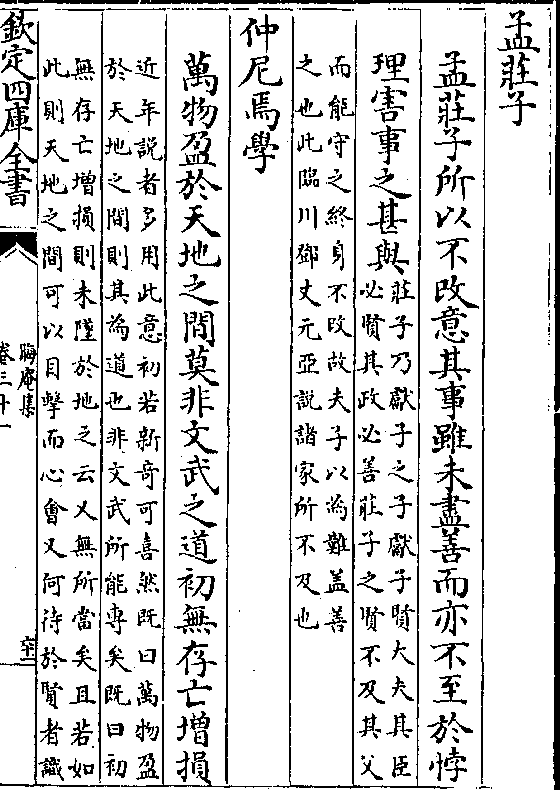 孟莊子
孟莊子所以不改意其事雖未盡善而亦不至於悖
理害事之甚與
莊子乃獻子之子獻子賢大夫其臣
必賢其政必善莊子之賢不及其父
而能守之終身不改故夫子以為難盖善
之也此臨川鄧丈元亞說諸家所不及也
仲尼焉學
萬物盈於天地之間莫非文武之道初無存亡增損
近年說者多用此意初若新奇可喜然既曰萬物盈
於天地之間則其為道也非文武所能專矣既曰初
無存亡增損則未墜於地之云又無所當矣且若如
此則天地之間可以目擊而心會又何待於賢者識
欽定四庫全書
晦庵集
卷三十一